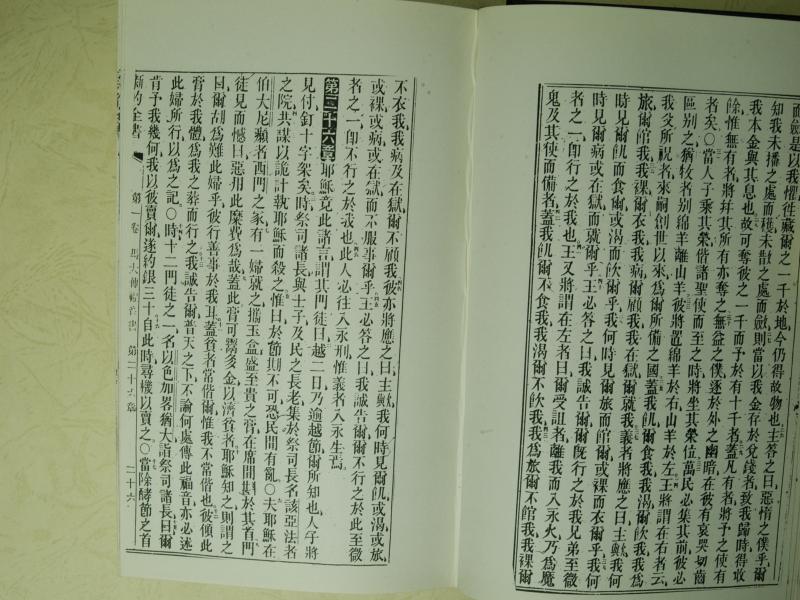 而斂是以我懼往藏爾之一千於地今仍得故物也主答之曰惡惰之僕乎爾
知我未播之處而穫未散之處而斂則當以我金存於兌錢者致我歸時得收
我本金與其息也故可奪彼之一千而予於有十千者蓋凡有者將予之使有
餘惟無有者將并其所有亦奪之無益之僕逐於外之幽暗在彼有哀哭切齒
者矣〇當人子乘其榮偕諸聖使而至之時將坐其榮位萬民必集其前彼必
區别之猶牧者别綿羊離山羊彼將置綿羊於右山羊於左王將謂在右者云
我父所祝者來嗣創世以來為爾所備之國蓋我飢爾食我我渴爾飲我我為
旅爾館我我裸爾衣我我病爾顧我我在獄爾就我義者將應之曰主歟我何
時見爾飢而食爾或渴而飲爾乎我何時見爾旅而館爾或裸而衣爾乎我何
時見爾病或在獄而就爾乎王必答之曰我誠告爾爾既行之於我兄弟至微
者之一即行之於我也王又將謂在左者曰爾受詛者離我而入永火乃為魔
鬼及其使而備者蓋我飢爾不食我我渴爾不飲我我為旅爾不館我我裸爾
不衣我我病及在獄爾不顧我彼亦將應之曰主歟我何時見爾飢或渴或旅
或裸或病或在獄而不服事爾乎王必答之曰我誠告爾爾不行之於此至微
者之一即不行之於我也此人必往入永刑惟義者入永生焉
第二十六章耶穌竟此諸言謂其門徒曰越二日乃逾越節爾所知也人子將
見付釘十字架矣時祭司諸長與士子及民之長老集於祭司長名該亞法者
之院共謀以詭計執耶穌而殺之惟曰於節期不可恐民間有亂〇夫耶穌在
伯大尼癩者西門之家有一婦就之攜玉盒盛至貴之膏在席間斟於其首門
徒見而憾曰惡用此糜費為哉蓋此膏可鬻多金以濟貧者耶穌知之則謂之
曰爾胡為難此婦乎彼行善事於我耳蓋貧者常偕爾惟我不常偕也彼傾此
膏於我體為我之葬而行之我誠告爾普天之下不論何處傳此福音亦必述
此婦所行以為之記〇時十二門徒之一名以色加畧猶大詣祭司諸長曰爾
肯予我幾何我以彼賣爾遂約銀三十自此時尋機以賣之〇當除酵節之首
新約全書 第一卷 馬太傳福音書 第二十六章 二十六